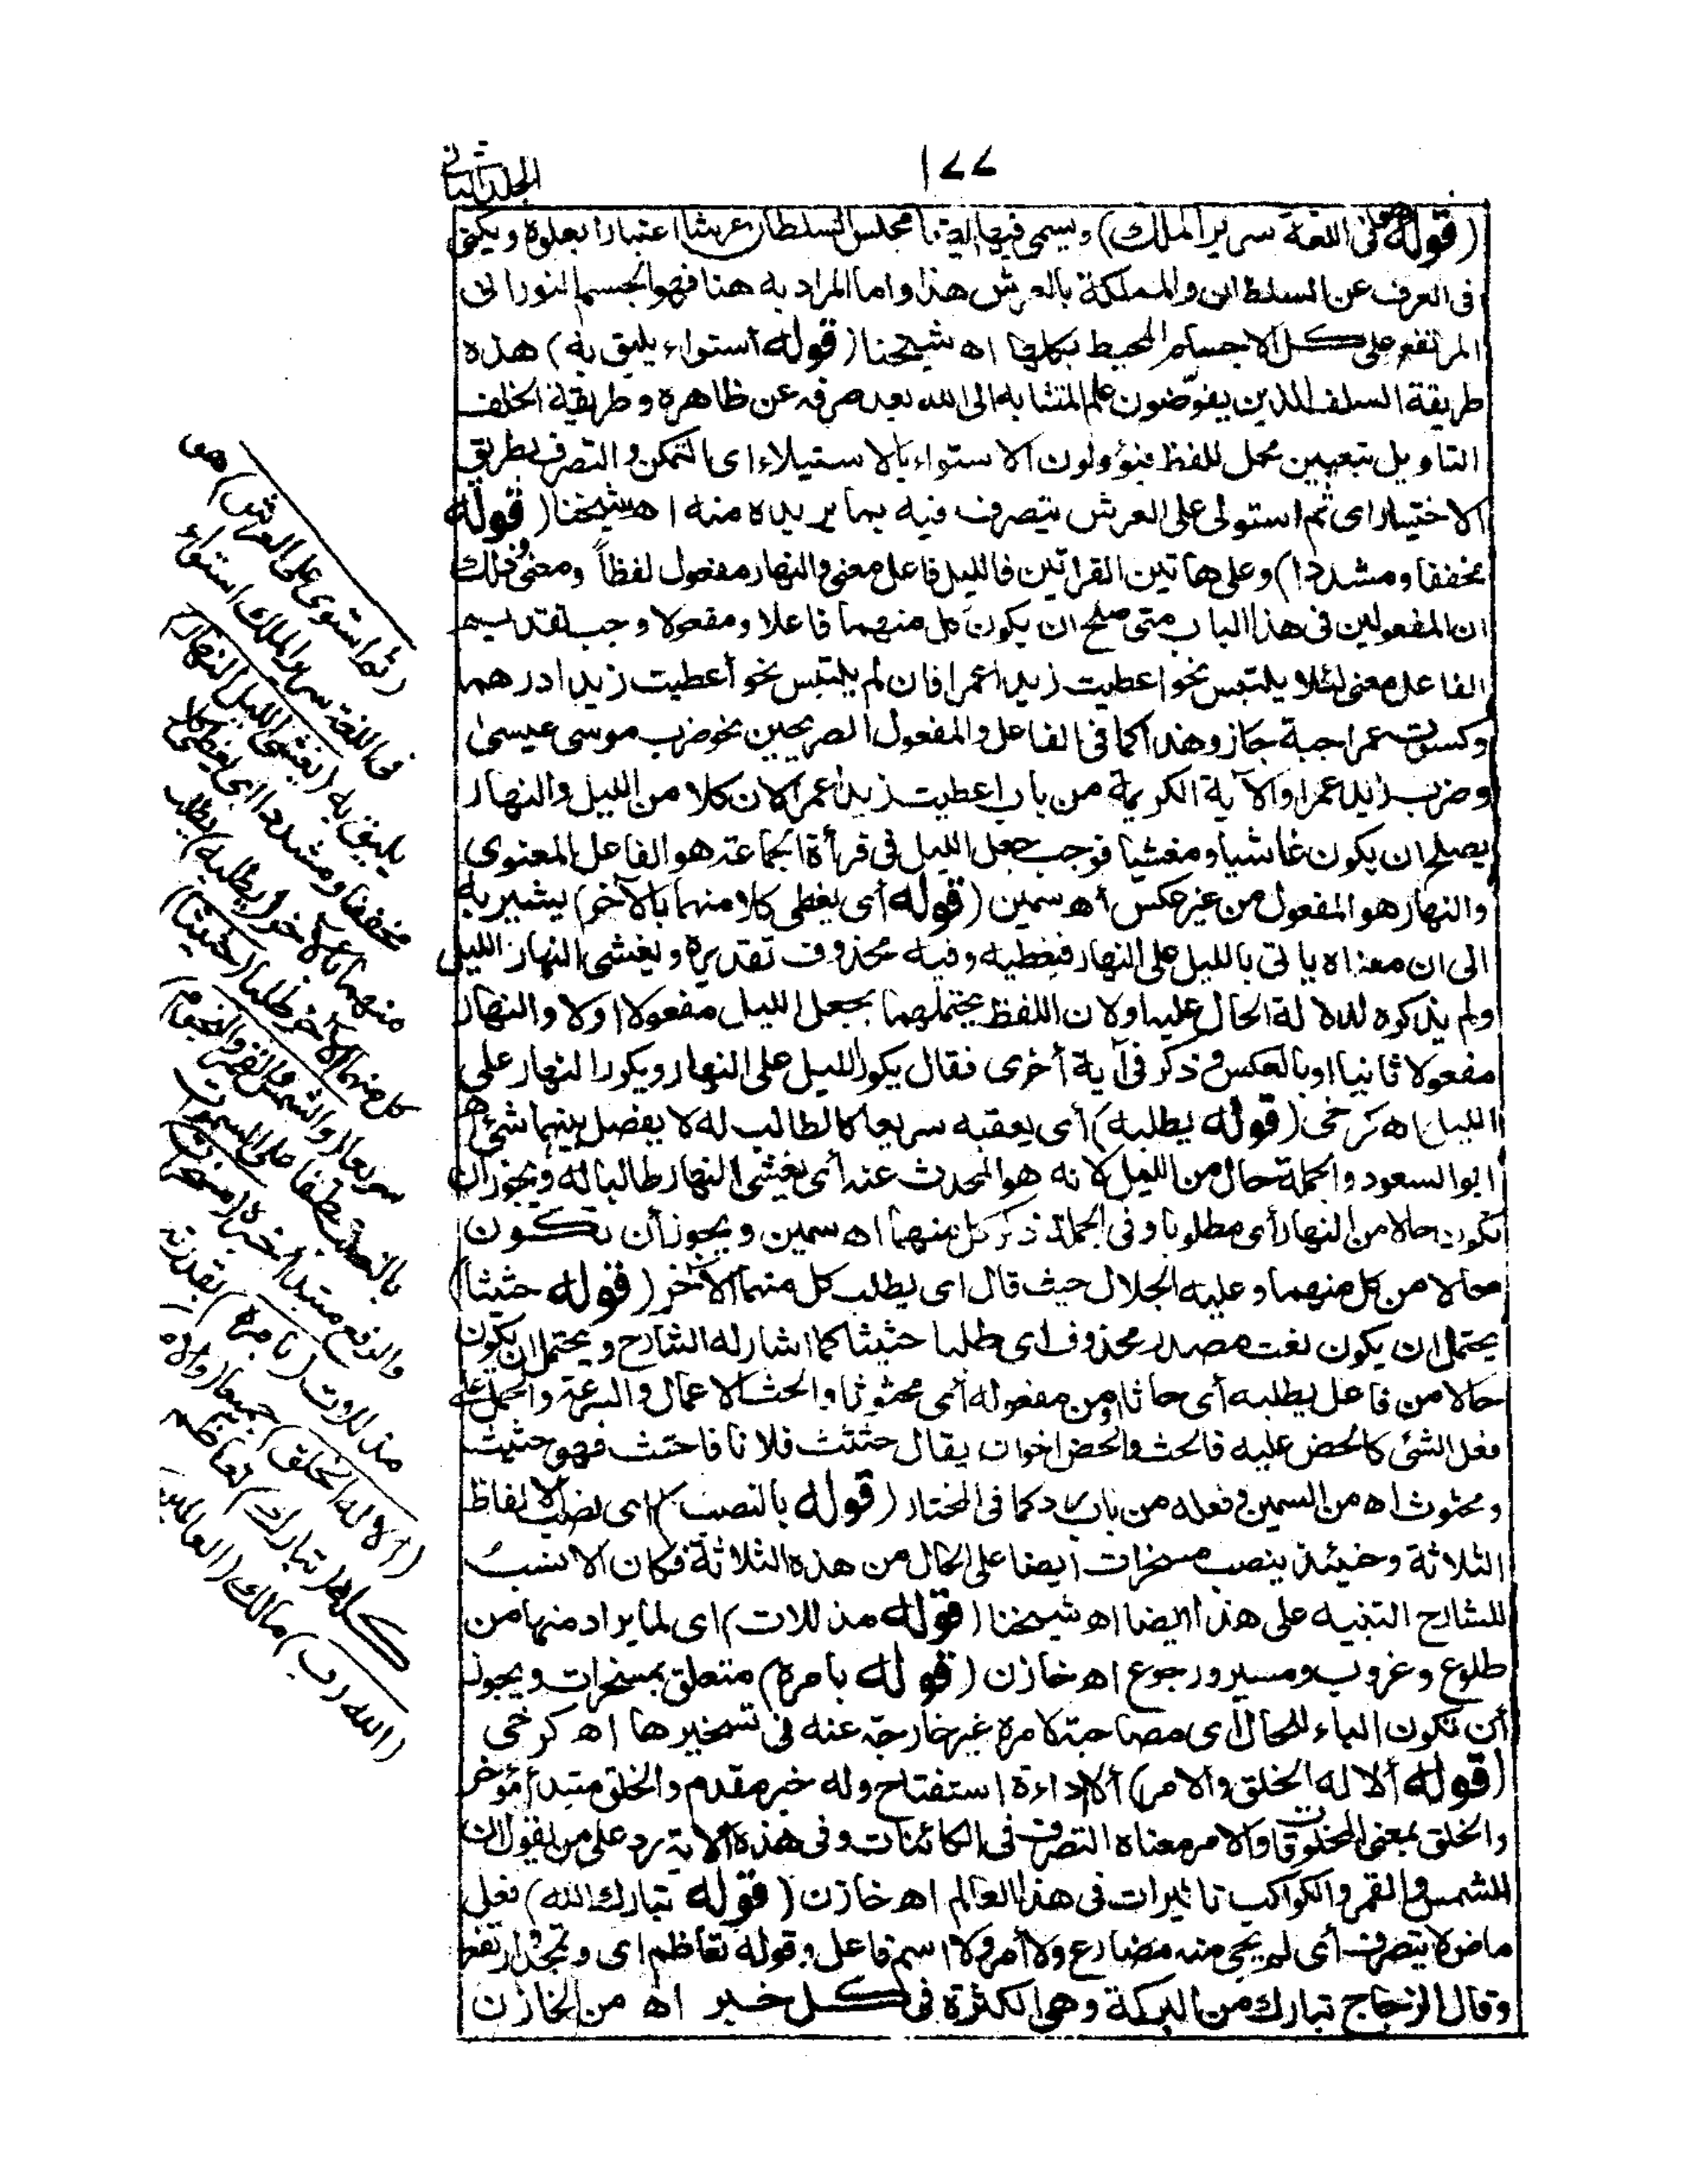 ١٧٧
الجلد الثانى
(قوله هو فى اللغة سرير الملك) ويسمى فيها ايضا مجلس السلطان عرشا اعتبارا بعلوه ويكنى
فى العرف عن السلطان والمملكة بالعرش هذا واما المراد به هنا فهو الجسم النورانى
المرتفع على كل الاجسام المحيط بكلها اه شيخنا (قوله أستواء يليق به) هذه
طريقة السلف الذين يفوّضون علم المتشابه الى الله بعد صرفه عن ظاهره وطريقة الخلف
التاويل بتعيين محمل للفظ فيؤولون الاستواء بالاستيلاء اى التمكن والتصرف بطريق
الاختيار اى ثم استولى على العرش يتصرف فيه بما يريده منه اه شيخنا (قوله
مخففا ومشددا) وعلى هاتين القراتين فالليل فاعل معنى والنهار مفعول لفظاً ومعنى وذلك
ان المفعولين فى هذا الباب متى صلح ان يكون كل منهما فاعلا ومفعولا وجب تقديم
الفاعل معنى لئلا يلتبس نحو اعطيت زيدا عمرا فان لم يلتبس نحو أعطيت زيدا درهما
وكسوت عمرا جبة جاز وهذا كما فى الفاعل والمفعول الصريحين نحو ضرب موسى عيسى
وضرب زيد عمرا والآية الكريمة من باب اعطيت زيدا عمرا لان كلا من الليل والنهار
يصلح ان يكون غاشيا ومغشيا فوجب جعل الليل فى قرأة الجماعة هو الفاعل المعنوى
والنهار هو المفعول من غير عكس أه سمين (قوله أى يغطى كلا منهما بالآخر) يشير به
الى ان معناه ياتى بالليل على النهار فيغطيه وفيه محذوف تقديره ويغشى النهار الليل
ولم يذكره لدلالة الحال عليه اولان اللفظ يحتملهما بجعل الليل مفعولا اولا والنهار
مفعولا ثانيا او بالعكس وذكر فى آية أخرى فقال يكور الليل على النهار ويكور النهار على
الليل اه كرخى (قوله يطلبه) أى يعقبه سريعا كالطالب له لا يفصل بينهما شئ اه
ابو السعود والجملة حال من الليل لانه هو المحدث عنه أى يغشى النهار طالبا له ويجوز ان
تكون حالا من النهار أى مطلوبا وفى الجملة ذكر كل منهما اه سمين ويجوز أن تكون
حالا من كل منهما وعليه الجلال حيث قال اى يطلب كل منهما الآخر (قوله حثيثا)
يحتمل ان يكون نعت مصدر محذوف اى طلبا حثيثا كما اشار له الشارح ويحتمل ان يكون
حالا من فاعل يطلبه أى حاثا او من مفعوله أى محثوثا والحث الاعمال والسرعة والحمل على
فعل الشئ كالحض عليه فالحث والحض اخوان يقال حثثت فلانا فاحتث فهو حثيث
ومحثوث اه من السمين وفعله من باب رد كما فى المختار (قوله بالنصب) اى نصب الالفاظ
الثلاثة وحينئذ ينصب مسخرات ايضا على الحال من هذه الثلاثة فكان الانسب
للشارح التنبيه على هذا ايضا اه شيخنا (قوله مذللات) اى لما يراد منها من
طلوع وغروب ومسير ورجوع اه خازن (قوله بامره) متعلق بمسخرات ويجوز
أن تكون الباء للحال أى مصاحبة لامره غير خارجة عنه فى تسخيرها اه كرخى
(قوله ألا له الخلق والامر) ألا اداة استفتاح وله خبر مقدم والخلق مبتدأ مؤخر
والخلق بمعنى المخلوقات والامر معناه التصرف فى الكائنات وفى هذه الاية رد على من يقول ان
للشمس والقمر والكواكب تاثيرات فى هذا العالم اه خازن (قوله تبارك الله) فعل
ماض لا يتصرف أى لم يجئ منه مضارع ولا أمر ولا اسم فاعل وقوله تعاظم اى وتمجد وارتفع
وقال الزجاج تبارك من البركة وهى الكثرة فى كل خير اه من الخازن
(ثم استوى على العرش) هو
فى اللغة سرير الملك استواء
يليق به (يغشى الليل النهار)
مخففا ومشددا اى يغطى كلا
منهما بالآخر (يطلبه) يطلب
كل منهما الآخر طلبا (حثيثا)
سريعا (والشمس والقمر والنجوم)
بالنصب عطفا على السموات
والرفع مبتدأ خبره (مسخرات)
مذللات (بامره) بقدرته
(ألا له الخلق) جميعا (والامر)
كله (تبارك) تعاظم
(الله رب) مالك (العالمين)